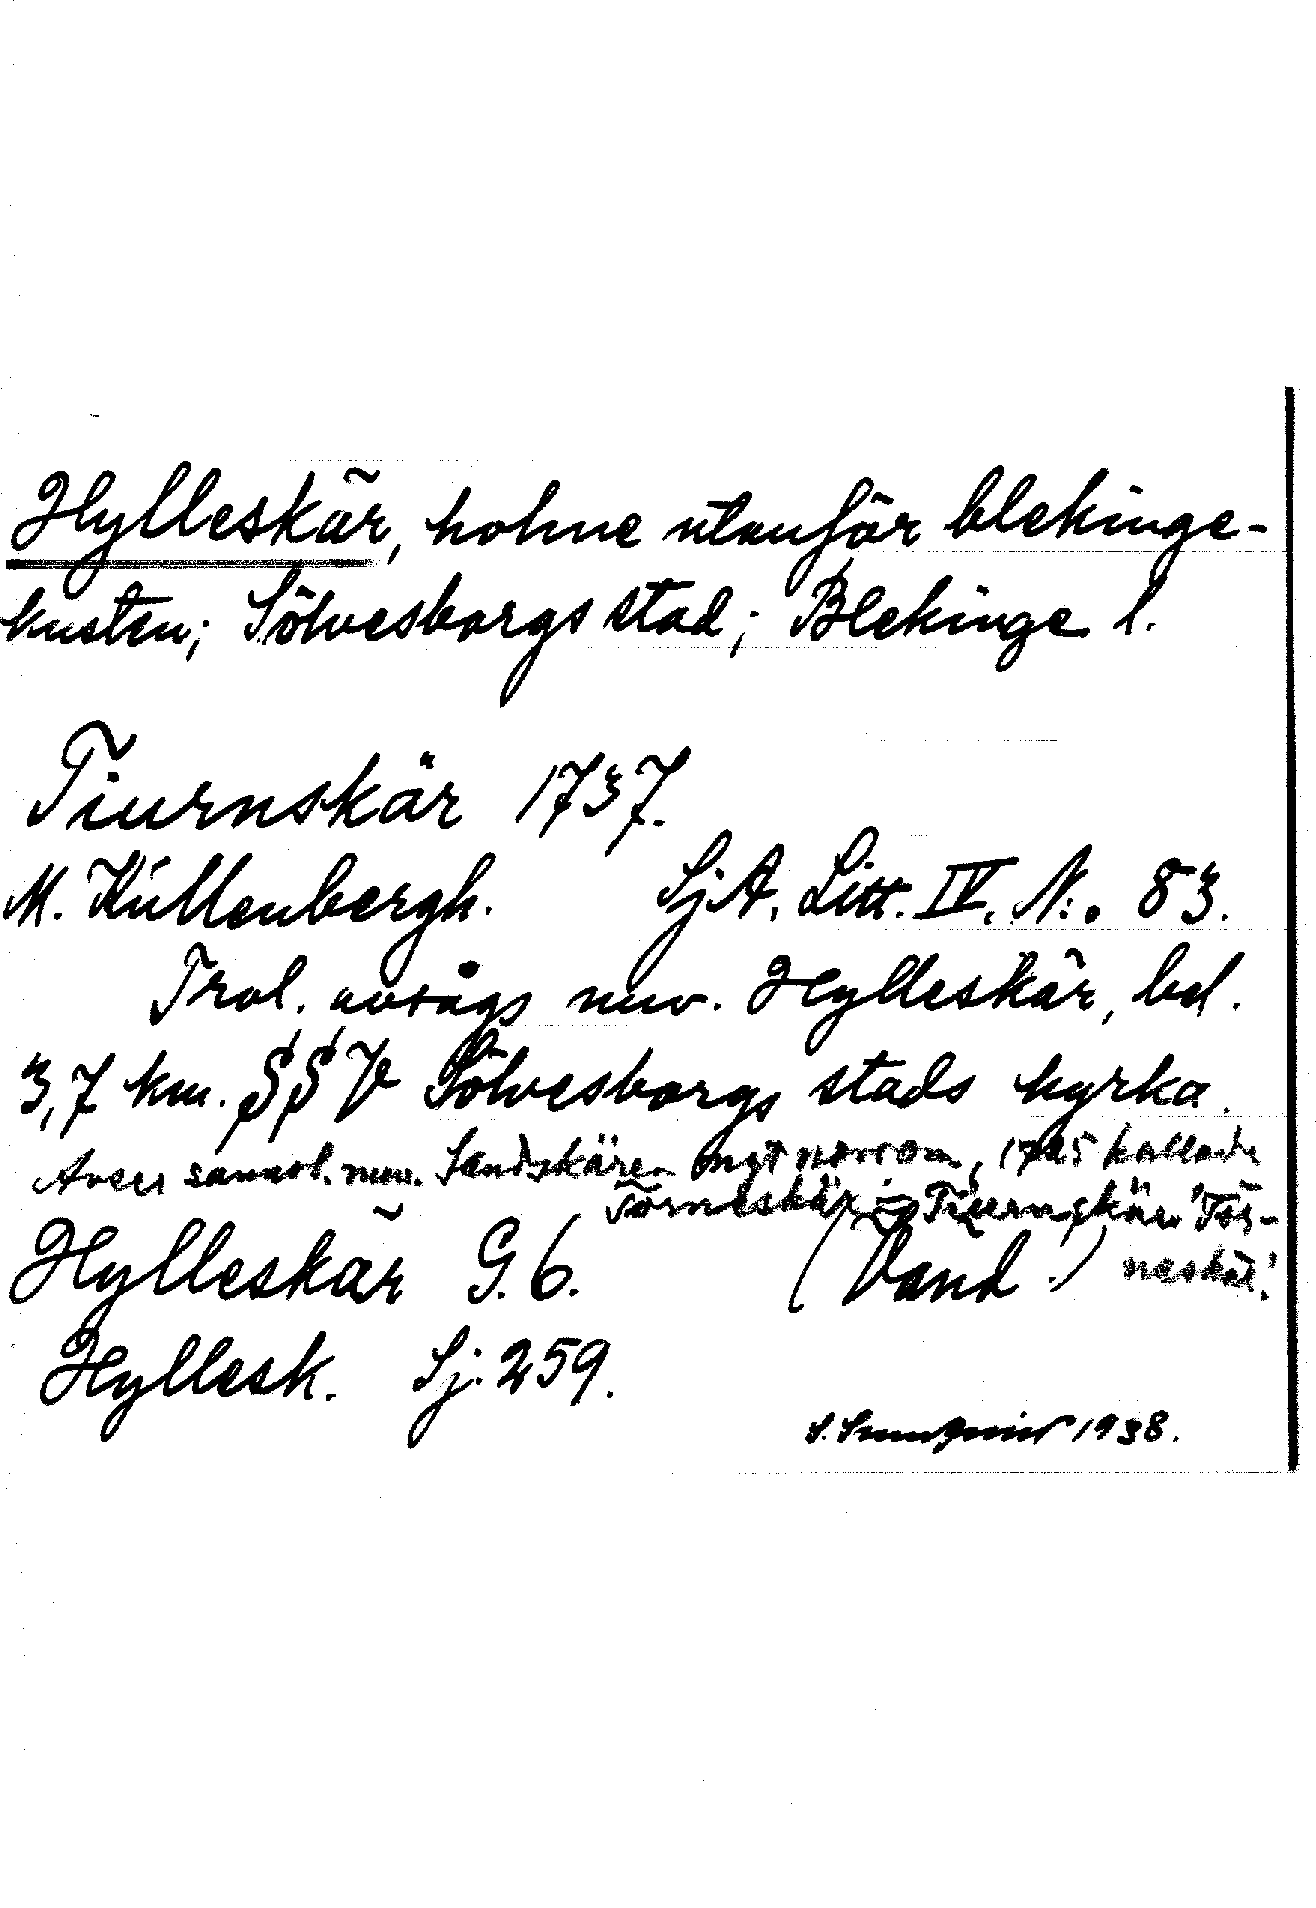 Hylleskär, holme utanför blekinge-
kusten; Sölvesborgs stad; Blekinge l.
Tiurnskär 1737.
M. Kullenbergh. SjA. Litt. IV. N:o 83.
Trol. avsågs nuv. Hylleskär, bel.
3,7 km. SSV Sölvesborgs stads kyrka.
Avser sannol. nuv. Sandskären ngt norrom, 1725 kallade
Törneskär = Tiurnskär 'Tör-
neskär'.
Hylleskär G. 6. (Vand.)
Hyllesk. Sj. 259.
1938.